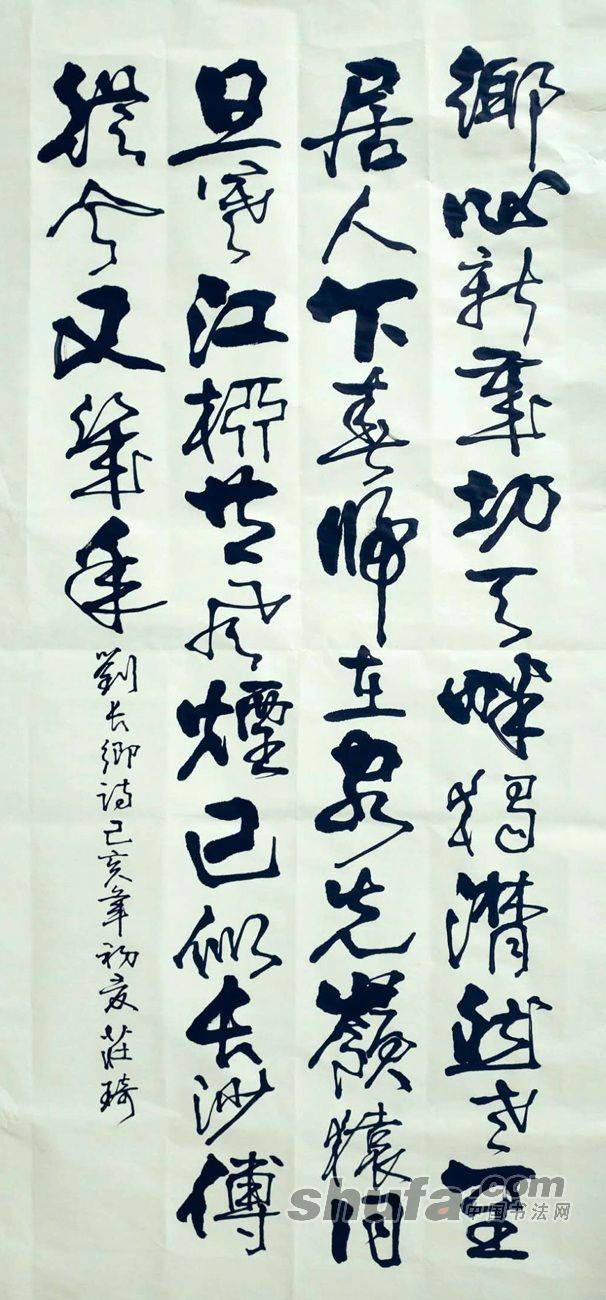 鄉心新歲切天畔獨潸然老至
居人下春歸在客先嶺猿同
旦暮江柳共風煙已似長沙傅
從今又幾年
劉長卿詩己亥年初夏莊琦
shufa.com
中国书法网